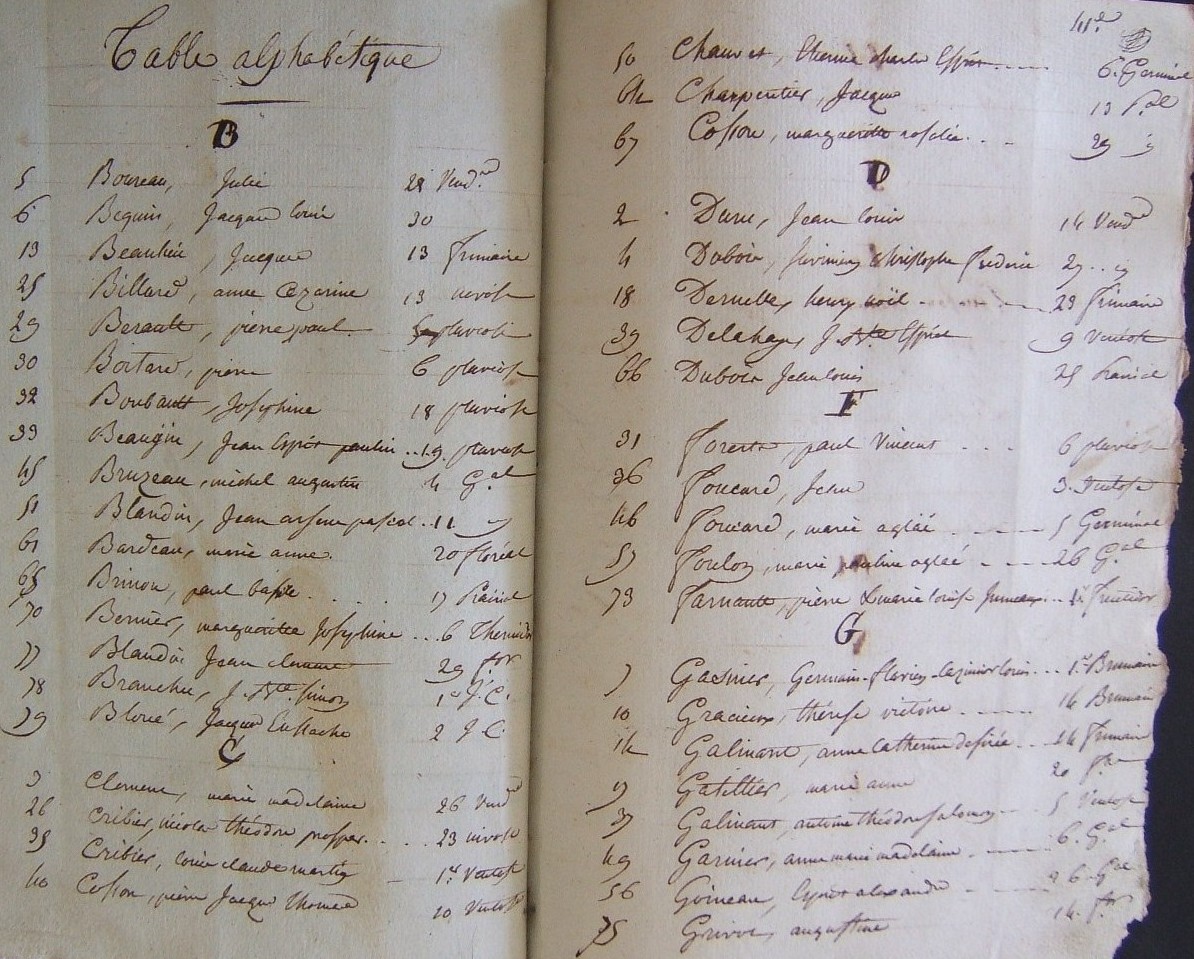 Table alphabétique
B
5 Boureau, Julie 28 Vend.re
6 Beguin, Jacques louis 30
13 Beaulieu, Jacques 13 frimaire
25 Billard, anne Cezarine 13 nivose
29 Berault, pierre paul 5 pluviose
30 Boitard, pierre 6 pluviose
32 Boubault, Josephine 18 pluviose
33 Beaugin, Jean Esprit paulin .. 19. pluviose
45 Bruzeau, michel augustin 4 G.al
51 Blandin, Jean arsene pascal .. 11
61 Bardeau, marie anne. 20 floréal
65 Brinon, paul basile . . . . 17 Prairial
70 Bernier, margueritte Josephine ... 6 Thermidor
77 Blandin Jean clement 29 f.or
78 Branchu, J. B.te Simon 1.er J. C.
79 Bloué, Jacques Eustache 2 J. C.
C
3 Clement, marie madelaine 26 Vend.re
26 Cribier, nicolas théodore prosper. . . . . . 23 nivose
35 Cribier, louise claude martin 1.er Ventose
40 Cosson, pierre Jacques Thomas 10 Ventose
50 Chauvet, Etienne charles Esprit . . . . 6. Germinal
64 Charpentier, Jacques 13 P.al
67 Cosson, margueritte rosalie . . . 29
D
2 Duru, Jean louis 14 Vend.re
4 Dubois, christophe frederic 27
18 Dernelle, henry noël 23 frimaire
39 Delahaye, J. B.te Esprit 9 Ventose
66 Dubois Jean louis 25 Prairial
F
31 forest, paul Vincent . . . . 6 pluviose
36 foucard, Jean 3. Ventose
46 foucard, marie aglaé 5 Germinal
57 foulon, marie pauline aglaé 26 G.al
73 farnault, pierre & marie louise Jumeaux .. 1.er fructidor
G
7 Gasnier, Germain flavien cazimir louis . . . 1.er Brumaire
10 Gracieux, thérèse victoire 14 Brumaire
14 Galinant, anne catherine desirée . . 14 frimaire
19 Gatellier, marie anne 20 f.re
37 Galinant, antoine théodore salomon 5 Ventose
49 Garnier, anne marie madelaine 6. G.al
56 Goineau, Esprit alexandre 26 G.al
75 Grivot, augustine 14. f.or